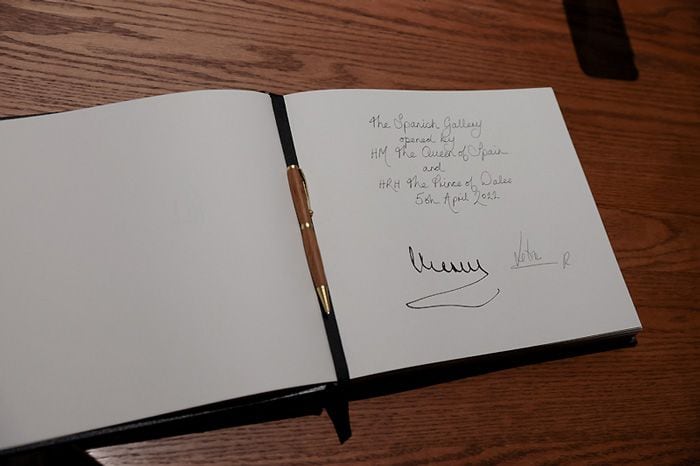 The Spanish Gallery
opened by
HM The Queen of Spain
and
HRH The Prince of Wales
5th April 2022
R